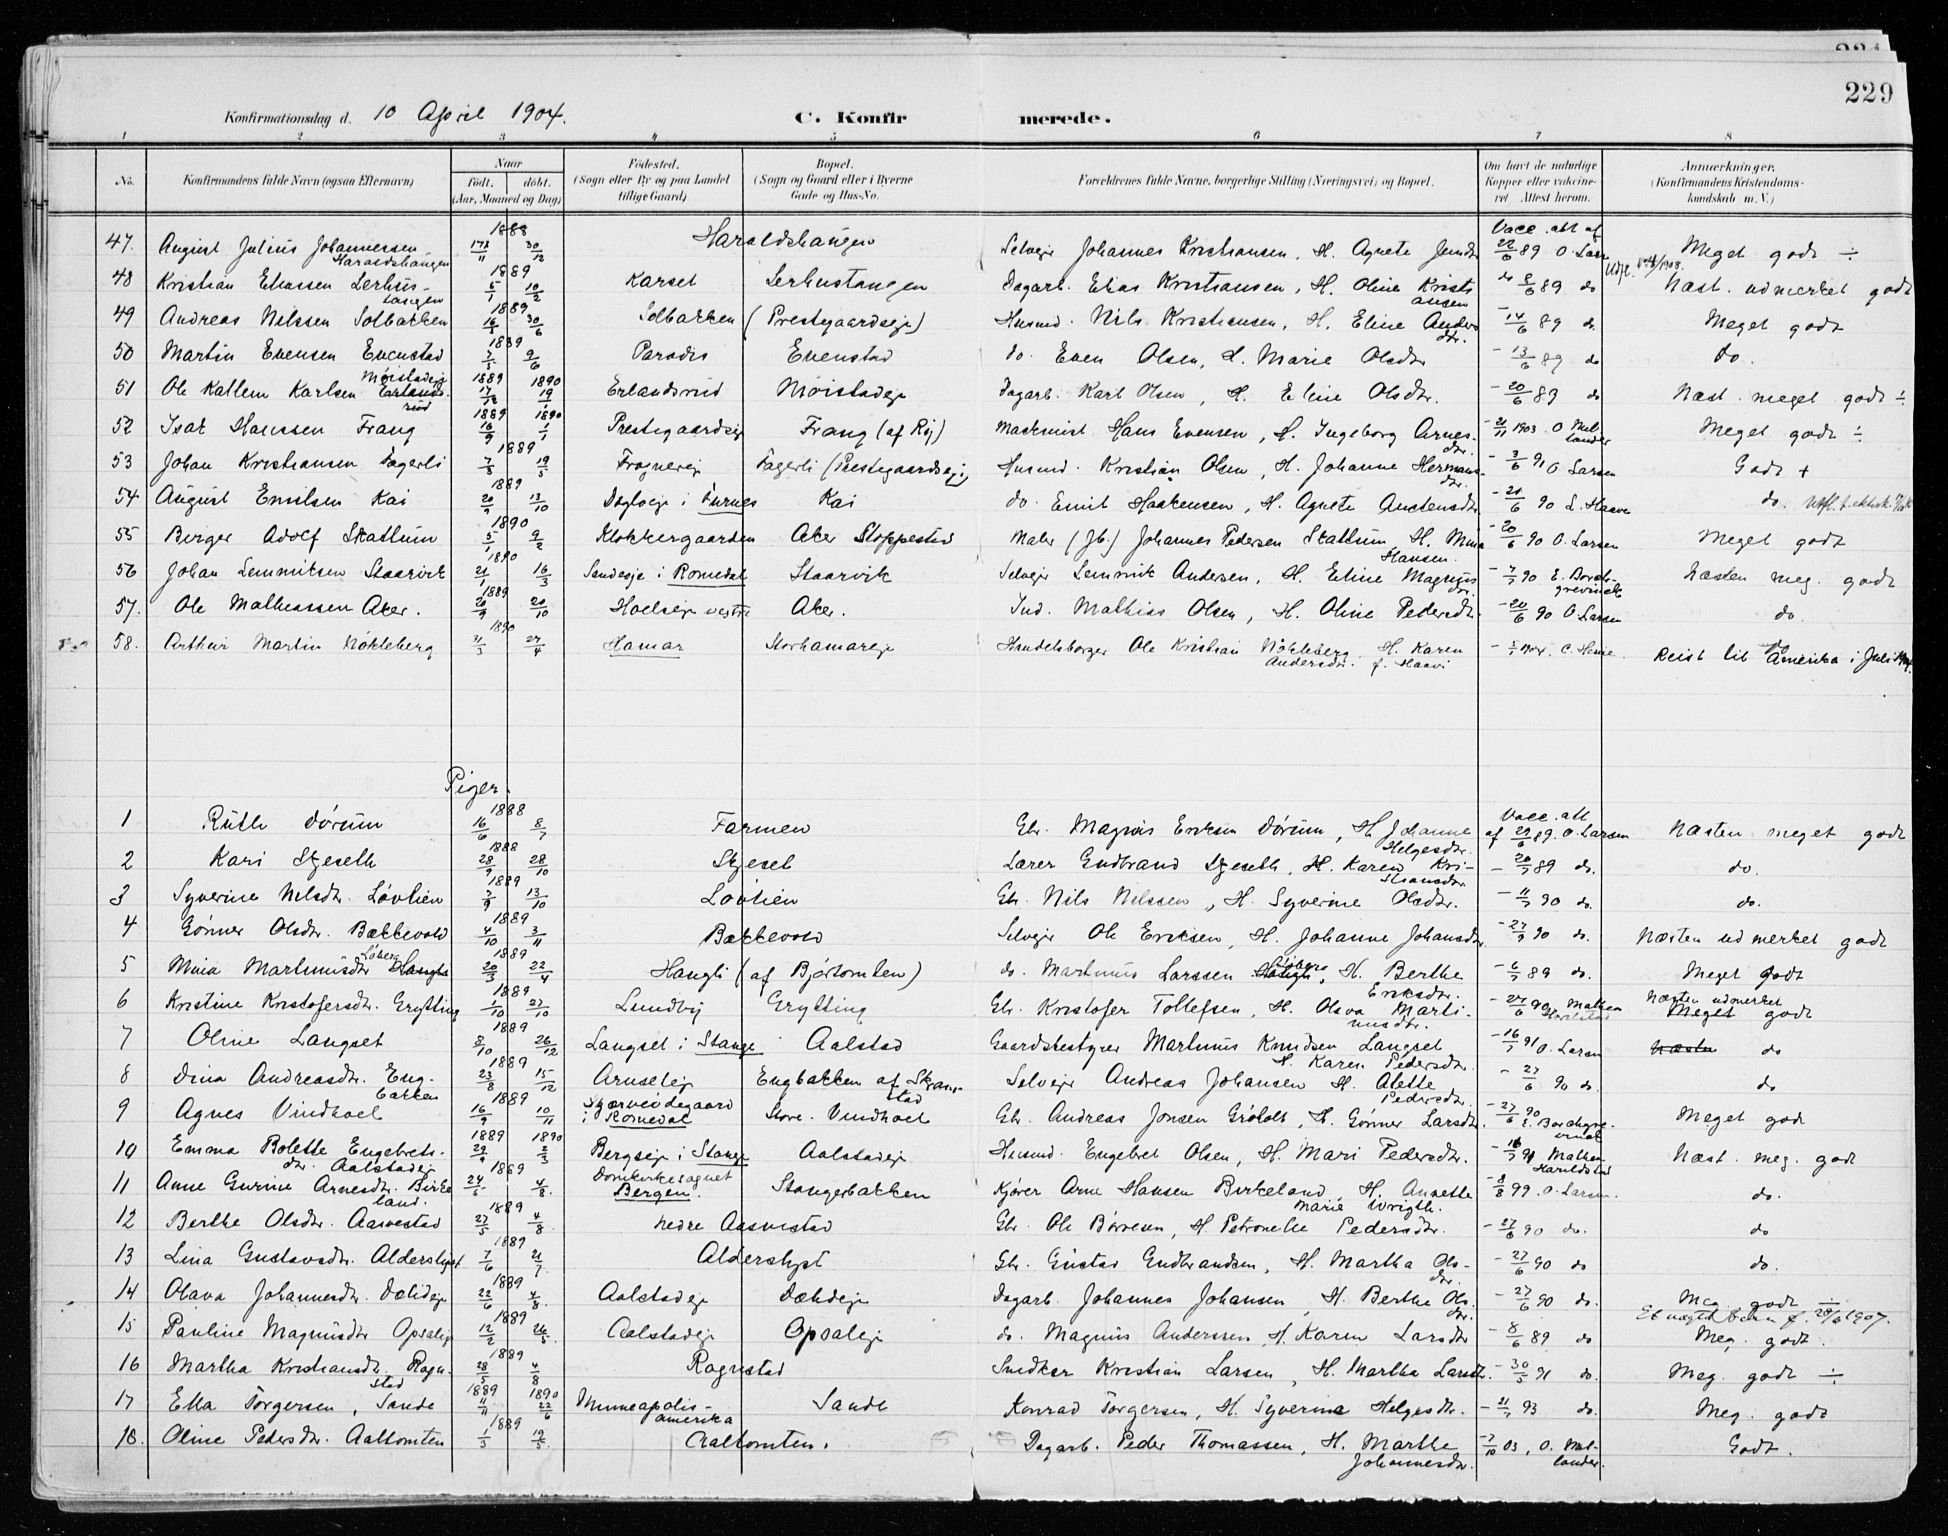 229
Konfirmationsdag d. 10 April 1904.
C. Konfirmerede.
1 2 3 4 5 6 7 8
No. Konfirmandens fulde Navn (ogsaa Efternavn) Naar Födt. döbt. (Aar, Maaned og Dag) Födested. (Sogn eller By og paa Landet tillige Gaard) Bopæl. (Sogn og Gaard eller i Byerne Gade og Hus-No. Forældrenes fulde Navne, borgerlige Stilling (Næringsvei) og Bopæl. Om havt de naturlige Kopper eller vaccineret. Attest herom. Anmærkninger. (Konfirmandens Kristendomskundskab m. V.)
47. August Julius Johannessen Haraldshaugen 1888 30/12 Haraldshaugen Selveier Johannes Kristiansen, H. Agnete Vacc. att af 22/6 89 O. Larsen Meget godt ÷
48 Kristian Eliassen Lerhustangen 1889 5/1 10/2 Karset Lerhustangen Dagarb. Elias Kristiansen, H. Oline Kristiansen 8/6 89 do Næst. udmerket godt
49 Andreas Nilssen Solbakken 1889 16/5 30/6 Solbakken (Prestegaardseje) Husmd. Nils Kristiansen, H. Eline Andersdtr. 14/6 89 do Meget godt
50 Martin Evensen Evenstad 1889 7/5 9/6 Paradis Evenstad do. Even Olsen, H. Marie Olsdtr 13/6 89 do do.
51 Ole Kallem Karlsen Erlandsrud Möistadeje 1889 1890 17/12 19/1 Erlandsrud Möistadeje Dagarb. Karl Olsen, H. Eline Olsdtr. 20/6 89 do Næst. meget godt ÷
52 Isak Hanssen Frang 1889 1890 16/9 1/1 Prestegaardseje Frang (af Ry) Maskinist Hans Evensen, H. Ingeborg Arnesdtr. 21/11 1903 O. Mellander Meget godt ÷
53 Johan Kristiansen Fagerli 1889 7/3 19/5 Frognereje Fagerli (Prestegaardseje) Husmd. Kristian Olsen, H. Johanne Hermansdtr. 3/6 91 O Larsen Godt +
54 August Emilsen Kai 1889 20/9 13/10 i Furnes Kai do. Emil Haakensen, H. Agnete 21/6 90 do.
55 Birger Adolf Skattum 1890 5/1 9/2 Klokkergaarden Aker Stoppested Maler (Jb.) Johannes Pedersen Skattum, H. Mina Hansen. 20/6 90 O. Larsen Meget godt
56 Johan Lemmiksen Staarvik 1890 21/1 16/3 Sandeeje i Romedal Staarvik Selveier Lemmik Andersen, H. Eline Magnusdtr. 7/7 90 E. Borchgrevink Næsten meg. godt
57. Ole Mathiassen Aker. 1889 20/9 20/10 Hoelseje vestre Aker. Ind. Mathias Olsen, H. Oline Pedersdtr. 20/6 90 O Larsen do.
58. Arthur Martin Nökleberg 1890 31/3 27/4 Hamar Storhamareje Handelsborger Ole Kristian Nökleberg, H. Karen Andersdtr. f. Haavi do Reist til Amerika i Juli
Piger.
1 Ruth Dörum 1888 16/6 8/7 Farmen Gbr. Magnus Eriksen Dörum, H. Johanne Helgesdtr. Vacc. att af 22/6 89. O. Larsen Næsten meget godt
2 Kari Skjeseth 1888 28/9 28/10 Skjeset Lærer Gudbrand Skjeseth, H. Karen Kristiansdtr. 20/7 89 do. do.
3 Syverine Nilsdtr. Lövlien 1889 7/9 13/10 Lövlien Gbr. Nils Nilssen, H. Syverine Olsdtr. 11/7 90 do. do.
4 Gönner Olsdtr. Bækkevold 1889 4/10 3/11 Bækkevold Selveier Ole Eriksen, H. Johanne Johansdtr 27/7 90 do. Næsten udmerket godt
5 Mina Martinusdtr Haugli 1889 20/3 22/4 Haugli (af Björtomten) do. Martinus Larssen, H. Berthe Eriksdtr. 6/7 89 do. Meget godt
6 Kristine Kristofersdtr. Grytting 1889 1/10 27/10 Lundby Grytting Gbr. Kristofer Tollefsen, H. Olava Martinusdtr. 27/6 90 Næsten udmerket Meget godt
7 Oline Langset 1889 8/10 26/12 Langset i Stange Aalstad Gaardsbestyrer Martinus Knudsen Langset H. Karen Pedersdtr. 16/7 91 O. Larsen Næsten do
8 Dina Andreasdtr. Engbakken 1889 23/8 15/12 Arnseteje Engbakken af Skramstad Selveier Andreas Johansen H. Alette Pedersdtr. 27/6 90 do. do
9 Agnes Vindhoel 1889 16/9 10/11 i Romedal Store Vindhoel Gbr. Andreas Jonsen Gröholt, H. Gönner Larsdtr. 27/6 90 E. Borchgrevink Meget godt
10 Emma Bolette Engebretsdtr. Aalstadeje 1889 1890 29/9 2/3 Bergseje i Stange Aalstadeje Husmd. Engebret Olsen, H. Mari Pedersdtr. Næst. meg. godt
11 Anne Gurine Arnesdtr. Birkeland. 1889 24/5 4/8 Domkirkesognet Bergen. Stangerbakken Kjörer Arne Hansen Birkeland, H. Annette Marie Wrigth. 8/8 99. O. Larsen. do.
12 Berthe Olsdtr. Aasvestad 1889 27/5 4/8 nedre Aasvestad Gbr. Ole Börresen, H. Petronelle Pedersdtr. 27/6 90 do. do
13 Lina Gustavsdtr. Alderslyst 1889 7/6 21/7 Alderslyst Gbr. Gustav Gudbrandsen, H. Martha Olsdtr. 27/6 90 do do.
14 Olava Johannesdtr. Dælideje 1889 22/6 4/8 Aalstadeje Dælideje Dagarb. Johannes Johansen, H. Berthe Olsdtr. 27/6 90 do. Meg. godt ÷
15 Pauline Magnusdtr Opsaleje 1889 12/2 26/5 Aalstadeje Opsaleje do. Magnus Anderssen, H. Karen Larsdtr 8/6 89 do Et uægte barn f. 28/6 1907. Meg. godt.
16 Martha Kristiansdtr. Rognstad 1889 28/5 4/8 Rognstad Snedker Kristian Larsen, H. Martha Larsdtr. 30/5 91 do. Meg. godt ÷
17 Ella Torgersen, Sande 1889 1890 11/11 22/6 Minneapolis-amerika Sande Konrad Torgersen, H. Syverine Helgesdtr. 21/7 93 do. Meg. godt
18. Oline Pedersdtr. Aaltomten 1889 1/3 19/5 Aaltomten. Dagarb. Peder Thomassen, H. Marthe Johannesdtr. 7/10 03, O. Mellander. Godt.